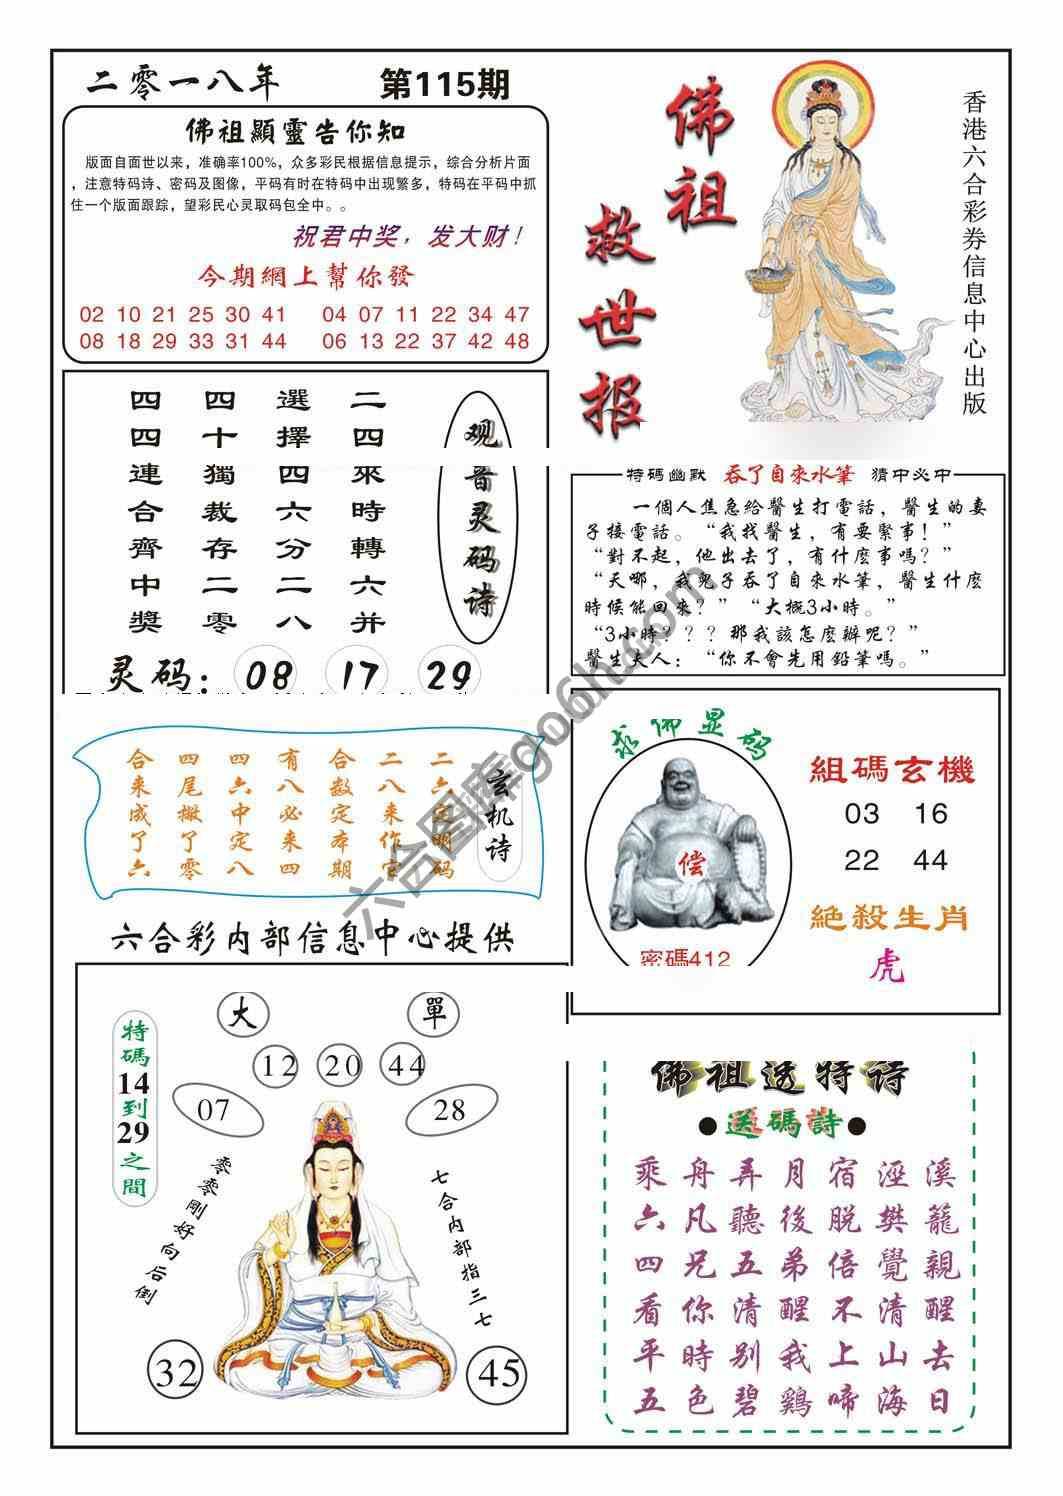 二零一八年 第115期
佛祖顯靈告你知
版面自面世以来，准确率100%，众多彩民根据信息提示，综合分析片面
，注意特码诗、密码及图像，平码有时在特码中出现繁多，特码在平码中抓
住一个版面跟踪，望彩民心灵取码包全中。。
祝君中奖，发大财！
今期網上幫你發
02 10 21 25 30 41 04 07 11 22 34 47
08 18 29 33 31 44 06 13 22 37 42 48
佛祖
救世报
香港六合彩券信息中心出版
观音灵码诗
二四來時轉六并
選擇四六分二八
四十獨裁存二零
四四連合齊中獎
灵码：08 17 29
特碼幽默 吞了自來水筆 猜中必中
一個人焦急給醫生打電話，醫生的妻
子接電話。“我找醫生，有要緊事！”
“對不起，他出去了，有什麽事嗎？”
“天哪，我兒子吞了自來水筆，醫生什麽
時候能回來？”“大概3小時。”
“3小時？？？那我該怎麽辦呢？”
醫生夫人：“你不會先用鉛筆嗎。”
玄机诗
二六定明码
二八来作官
合数定本期
有八必来四
四六中定八
四尾撇了零
合来成了六
六合彩内部信息中心提供
求佛显码
偿
密碼412
組碼玄機
03 16
22 44
絕殺生肖
虎
特碼14到29之間
大 單
12 20 44
07 28
零零剛好向后倒
七合内部指三七
32 45
佛祖透特诗
●送碼詩●
乘舟弄月宿涇溪
六凡聽後脫樊籠
四兄五弟倍覺親
看你清醒不清醒
平時别我上山去
五色碧鷄啼海日
六合图库go6h.com